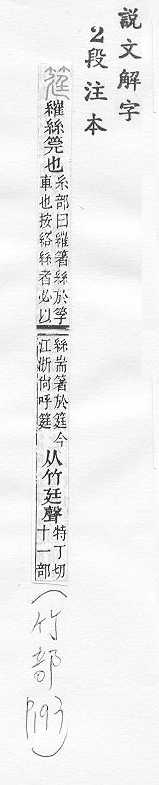 説文解字
2段注本
筳 繀絲筦也 糸部曰繀箸絲於筟車也按絡絲者必以絲耑箸於筳今江浙尚呼筳 从竹廷聲 特丁切十一部
(竹部 P193)